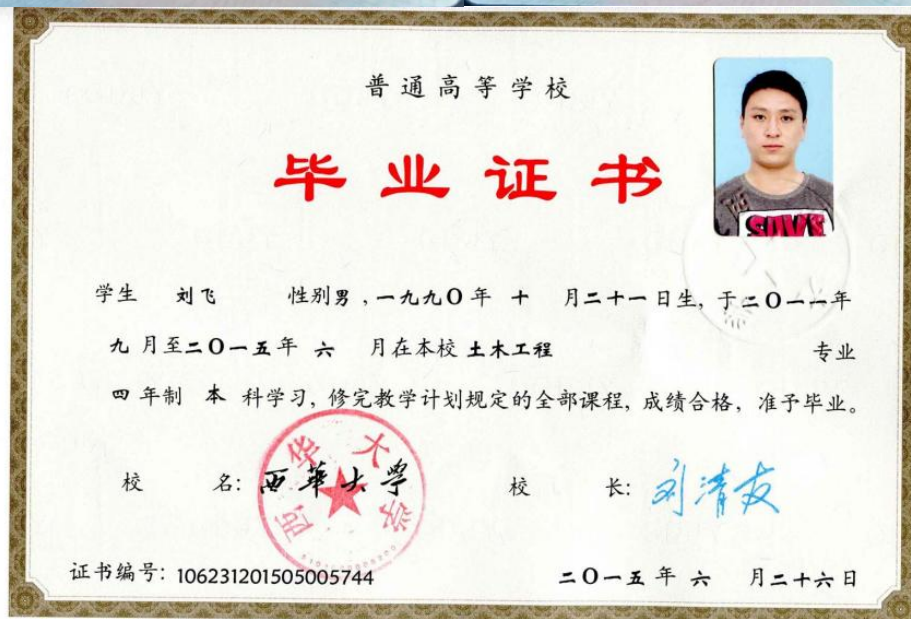 普通高等学校
毕业证书
学生 刘飞 性别男,一九九〇年 十 月二十一日生,于二〇一一年
九 月至二〇一五年 六 月在本校 土木工程 专业
四 年制 本 科学习,修完教学计划规定的全部课程,成绩合格,准予毕业。
校 名: 西華大学
西华大学
校 长: 刘清友
证书编号: 106231201505005744
二〇一五年 六 月二十六日